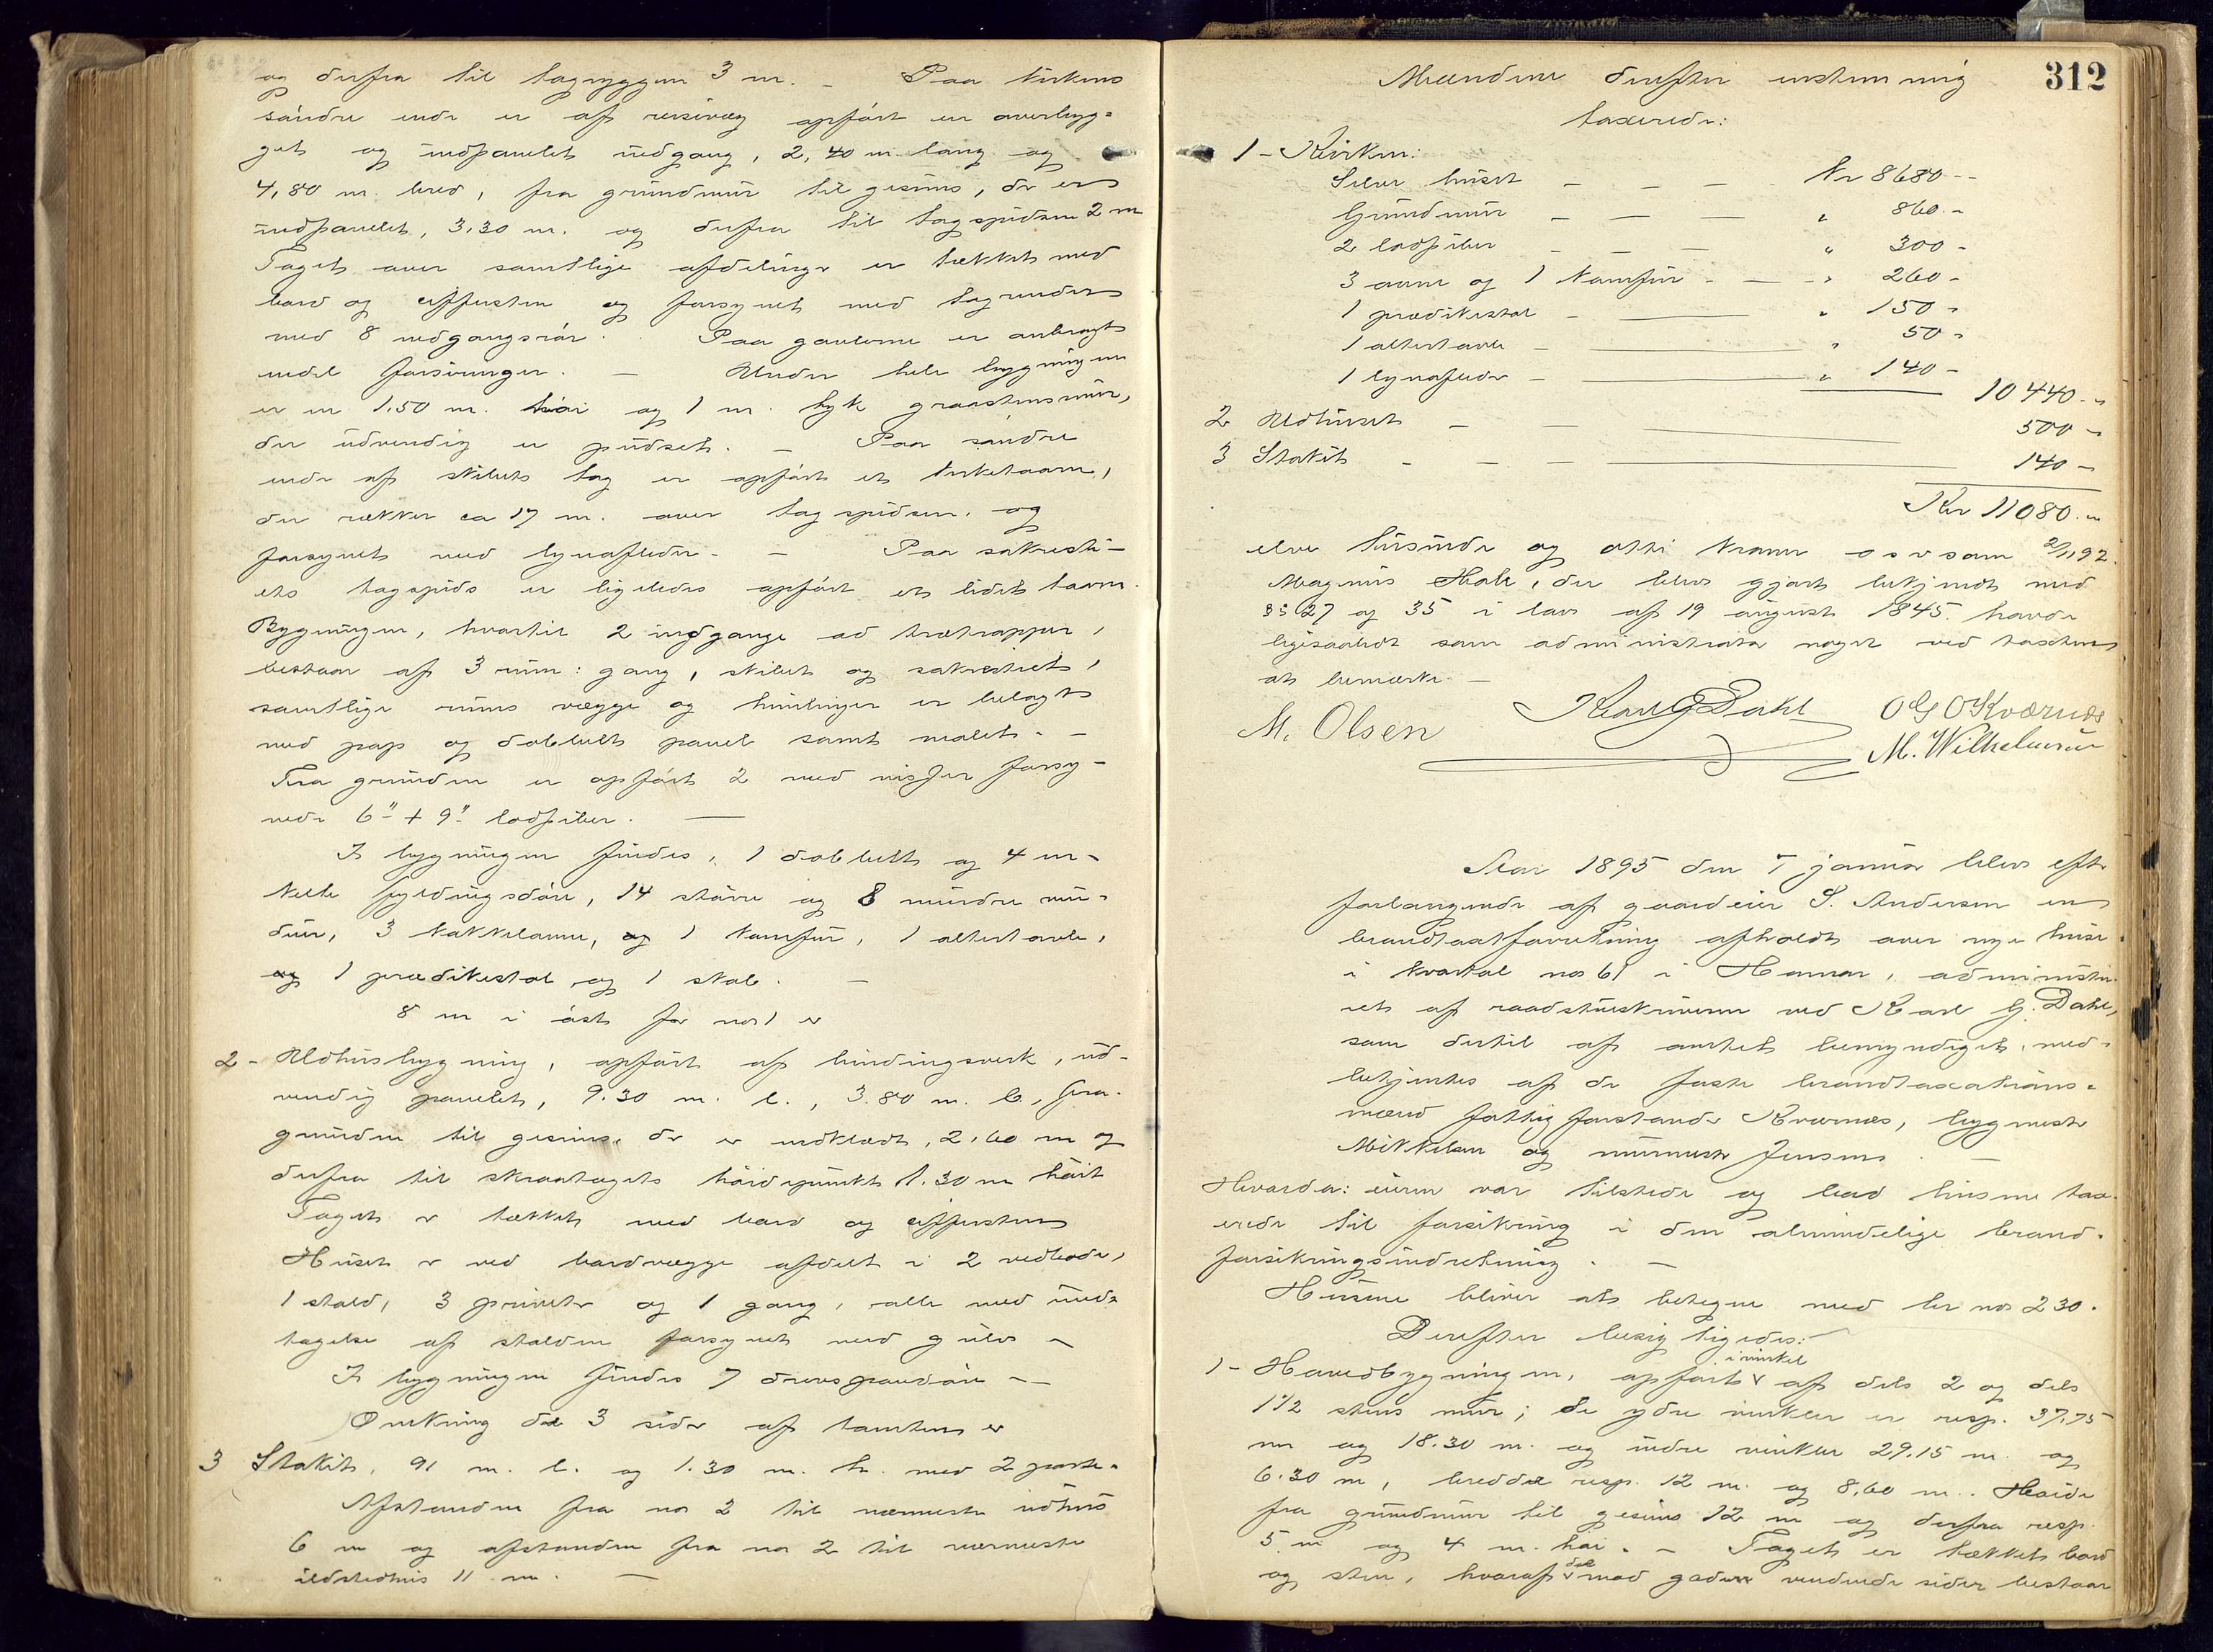 og derfra til tagryggen 3 m. – Paa kirkens
søndre ende er af reisværk opført en overbyg=
get og indpanelet nedgang, 2,40 m lang og
4,80 m. bred, fra grundmur til gesims, der er
indpanelet, 3,30 m. og derfra til tagspidsen 2 m
Taget over samtlige afdelinger er tækket med
bord og ciffersten og forsynet med tagrender
med 8 nedgangsrør. Paa gavlerne er anbragt
endel forsiringer. – Under hele bygningen
er en 1.50 m. høi og 1 m. tyk graastensmur,
der udvendig er pudset. – Paa søndre
ende af skibets tag er opført et kirketaarn,
der rækker ca 17 m. over tagspidsen, og
forsynet med lynafleder. – Paa sakresti-
ets tagspids er ligeledes opført et lidet taarn.
Bygningen, hvortil 2 indgange ad trætrapper,
bestaar af 3 rum: gang, skibet og sakrestiet,
samtlige rums vægge og himlinger er belagt
med pap og dobbelt panel samt malet. –
Fra grunden er opført 2 med nisjer forsy-
nede 6" + 9" lodpiber. –
I bygningen findes, 1 dobbelt og 4 en-
kelte fyldingsdøre, 14 større og 8 mindre vin-
duer, 3 kakkelovne, og 1 kamfur, 1 altertavle,
og 1 prædikestol og 1 skab. –
8 m i øst for nos 1 er
2 – Udhusbygning, opført af bindingsverk, ud-
vendig panelet, 9.30 m. l., 3.80 m. b., fra
grunden til gesims, der er indklædt, 2,60 m og
derfra til skraatagets høidepunkt 1.30 m høit
Taget er tækket med bord og ciffersten
Huset er ved bordvægge afdelt i 2 vedboder,
1 stald, 3 priveter og 1 gang, alle med und-
tagelse af stalden forsynet med gulv –
I bygningen findes 7 drevspandøre –
Omkring de 3 sider af tomten er
3 Stakit, 91 m. l. og 1.30 m. h. med 2 porte.
Afstanden fra no 2 til nærmeste udhus
6 m og afstanden fra no 2 til nærmeste
ildstedhus 11 m. –
312
Mændene derefter enstemmig
taxerede:
1 – Kirken:
Selve huset – – – Kr 8680 –
Grundmur – – – " 860 –
2 lodpiber – – – " 300 –
3 ovne og 1 kamfur – – " 260 –
1 prædikestol – – " 150 –
1 altertavle – – " 50 –
1 lynafleder – – " 140 –
10440 –
2 Udhuset – – 500 –
3 Stakit – – – 140 –
Kr 11080. –
elve tusinde og otti kroner o s v som 2/11 92.
Magnus Hole, der blev gjort bekjendt med
§§ 27 og 35 i lov af 19 august 1845. havde
ligesaalidt som administrator noget ved taxten
at bemærke. –
M. Olsen Karl G Dahl O G O Kværnæs
M. Wilhelmsen
Aar 1895 den 7 januar blev efter
forlangende af gaardeier S. Andersen en
brandtaxtforretning afholdt over nye huse
i kvartal nos 61 i Hamar, administre-
ret af raadstueskriveren ved Karl G. Dahl,
som dertil af amtet bemyndiget, med-
betjentes af de faste brandtaxations=
mænd fattigforstander Kværnæs, bygmester
Mikkelsen og murmester Jensen. –
Hvorda: eieren var tilstede og bad husene tax-
erede til forsikring i den almindelige brand-
forsikringsindretning. –
Husene bliver at betegne med br nos 230.
Derefter besigtigedes:
1 – Hovedbygningen, opført i vinkel af dels 2 og dels
1 1/2 stens mur; de ydre vinkler er resp. 37.75
m og 18.30 m. og indre vinkler 29.15 m. og
6.30 m, bredde resp. 12 m. og 8,60 m. Høide
fra grundmur til gesims 12 m og derfra resp.
5 m og 4 m. høi. – Taget er tækket bord
og sten, hvoraf del mod gaden vendende sider bestaar